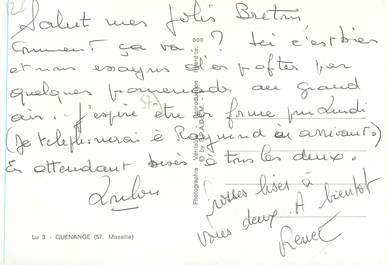 Salut mes Jolis Bretons
Comment ça va ? Ici c'est bien
et nous essayons d'en profiter par
quelques promenades au grand
air.. J'espère être en forme pour Lundi
(Je telephonerai à Raymond en arrivant.)
En attendant bises à tous les deux.
Loulou
grosses bises à
vous deux. A bientot
Renée
Lu 3 - GUENANGE (57. Moselle)